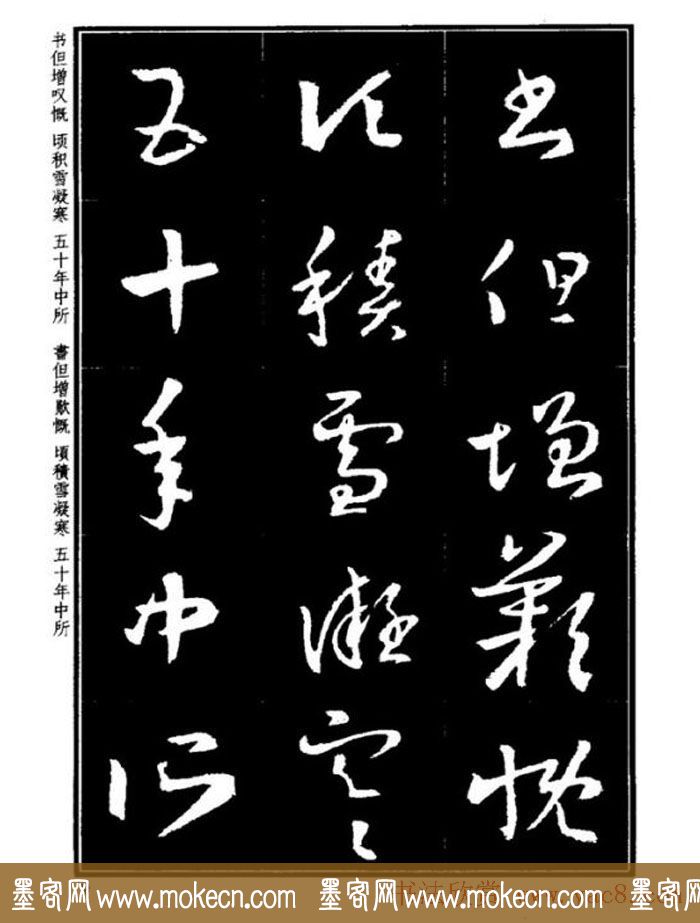 書但增歎慨
頃積雪凝寒
五十年中所
书但增叹慨 顷积雪凝寒 五十年中所 書但增歎慨 頃積雪凝寒 五十年中所
墨客网 www.mokecn.com 墨客网 www.mokecn.com 墨客网 www.mokecn.com
书法欣赏